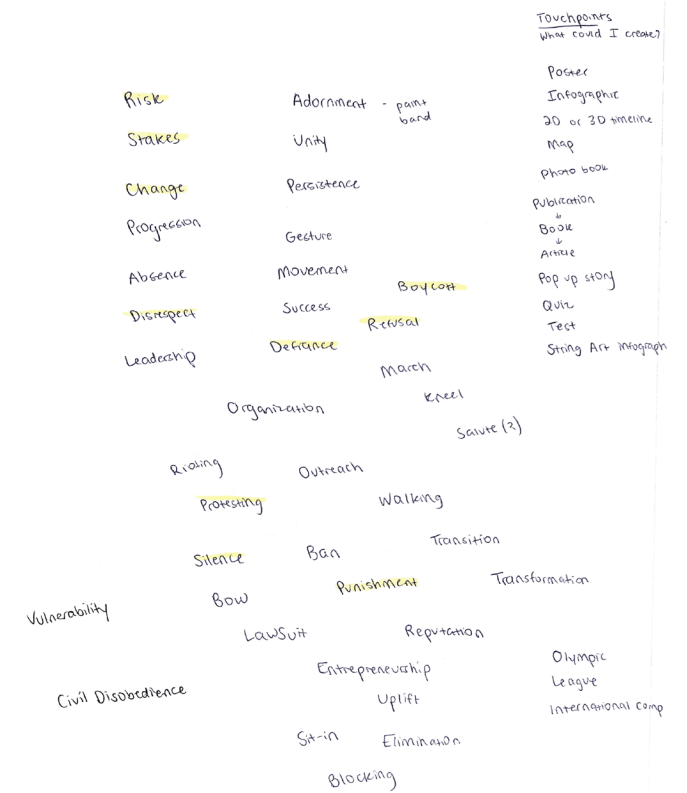 Touchpoints
What could I create?
Poster
Infographic
2D or 3D timeline
Map
Photo book
Publication
↓
Book
↓
Article
Pop up story
Quiz
Test
String Art infograph
Risk
Stakes
Change
Progression
Absence
Disrespect
Leadership
Adornment - paint
band
Unity
Persistence
Gesture
Movement
Success
Defiance
Boycott
Refusal
March
Kneel
Salute (?)
Organization
Rioting
Outreach
Protesting
Walking
Silence
Ban
Transition
Bow
Punishment
Transformation
Vulnerability
Lawsuit
Reputation
Entrepreneurship
Civil Disobedience
Uplift
Sit-in
Elimination
Blocking
Olympic
League
International comp